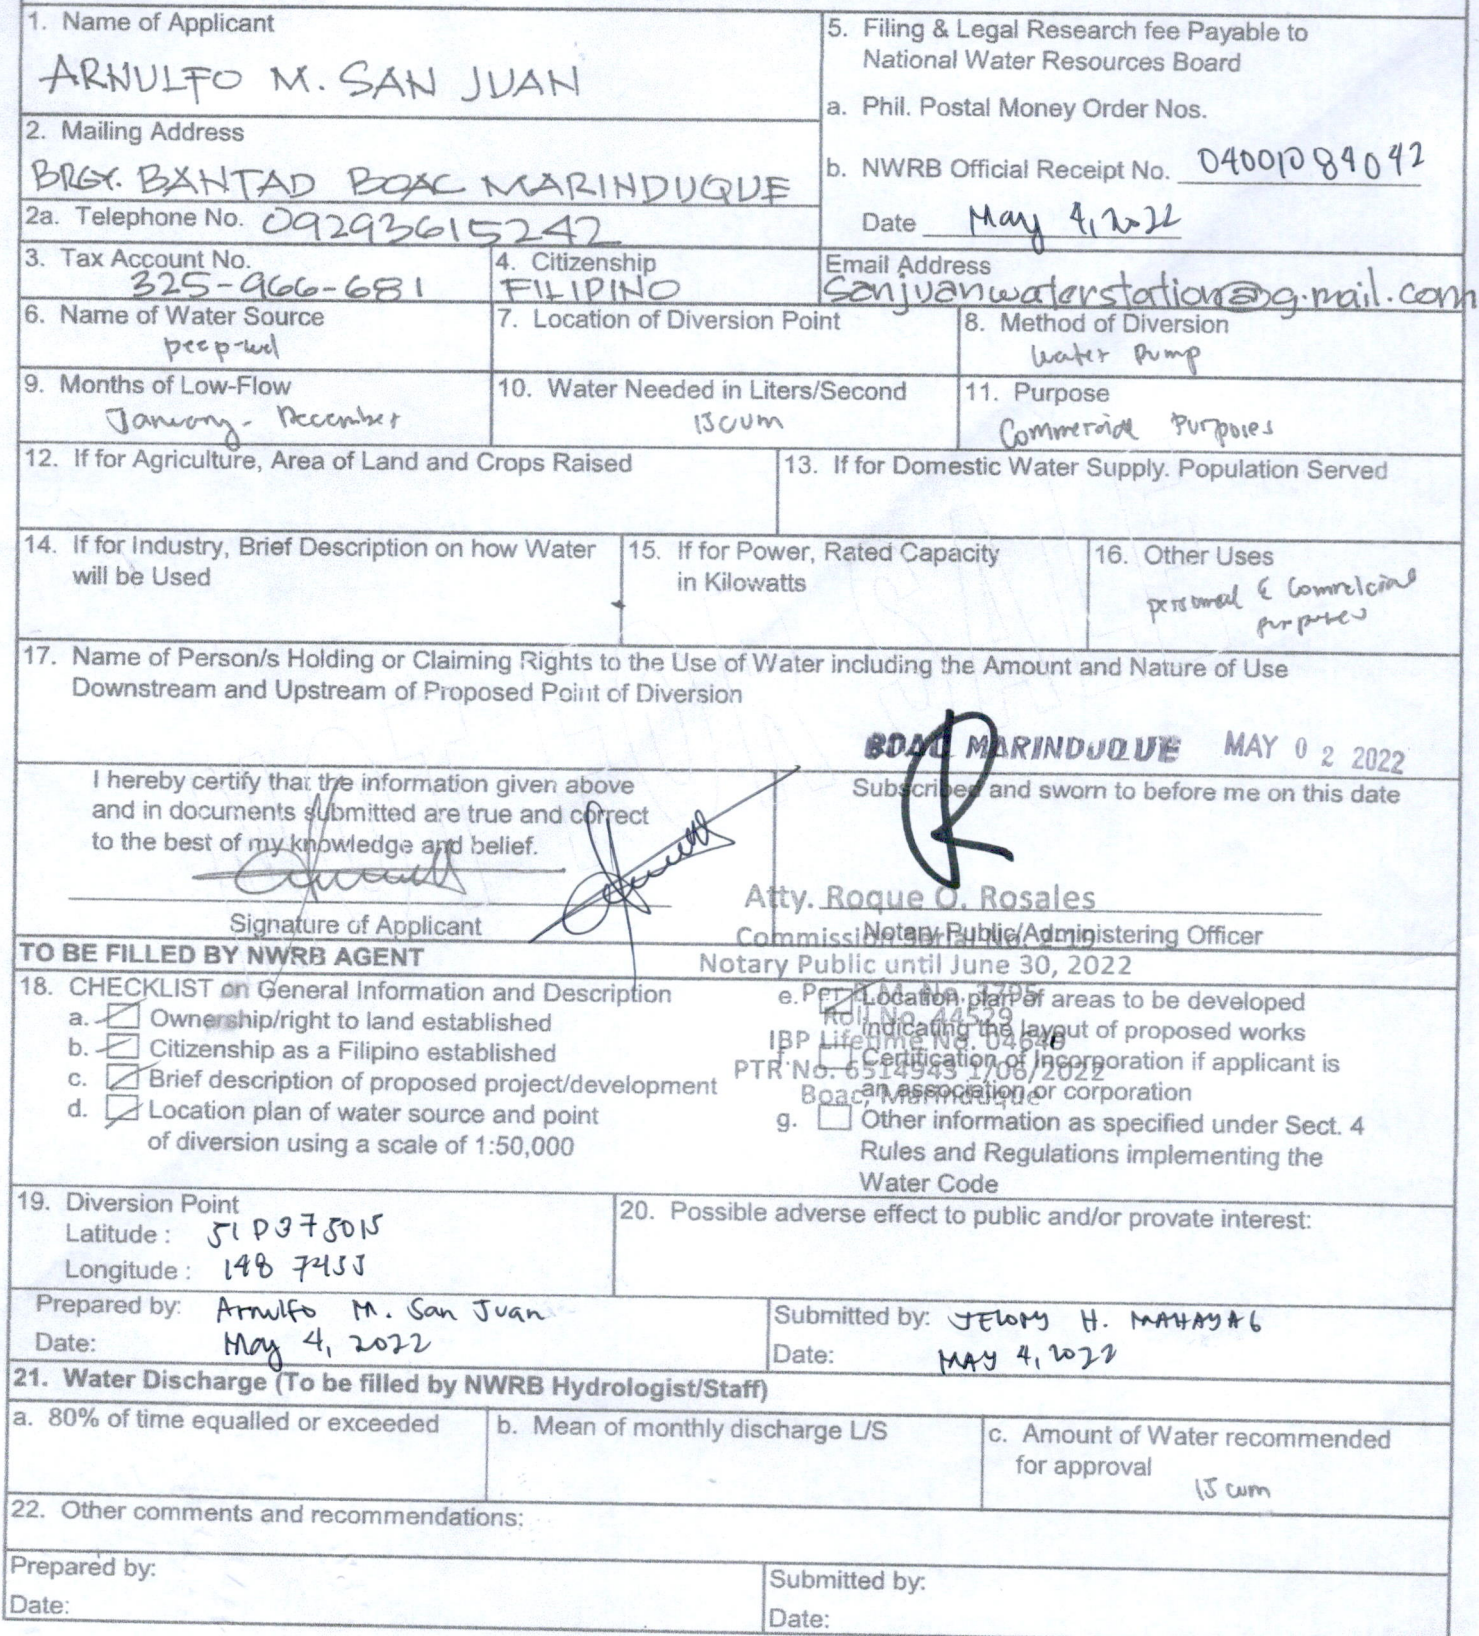 1. Name of Applicant
ARNULFO M. SAN JUAN
5. Filing & Legal Research fee Payable to
National Water Resources Board
a. Phil. Postal Money Order Nos.
b. NWRB Official Receipt No. 04001084042
Date May 4, 2022
2. Mailing Address
BRGY. BANTAD BOAC MARINDUQUE
2a. Telephone No. 09293615242
3. Tax Account No.
325-966-681
4. Citizenship
FILIPINO
Email Address
sanjuanwaterstation@g.mail.com
6. Name of Water Source
Deep-wel
7. Location of Diversion Point
8. Method of Diversion
Water Pump
9. Months of Low-Flow
January - December
10. Water Needed in Liters/Second
15 cum
11. Purpose
Commercial Purposes
12. If for Agriculture, Area of Land and Crops Raised
13. If for Domestic Water Supply. Population Served
14. If for Industry, Brief Description on how Water
will be Used
15. If for Power, Rated Capacity
in Kilowatts
16. Other Uses
personal & Commercial
purposes
17. Name of Person/s Holding or Claiming Rights to the Use of Water including the Amount and Nature of Use
Downstream and Upstream of Proposed Point of Diversion
BOAC MARINDUQUE MAY 02 2022
I hereby certify that the information given above
and in documents submitted are true and correct
to the best of my knowledge and belief.
Signature of Applicant
Subscribed and sworn to before me on this date
Atty. Roque O. Rosales
Notary Public/Administering Officer
Notary Public until June 30, 2022
Roll No. 44529
IBP Lifetime No. 04640
PTR No. 6514943 1/06/2022
Boac, Marinduque
TO BE FILLED BY NWRB AGENT
18. CHECKLIST on General Information and Description
a. Ownership/right to land established
b. Citizenship as a Filipino established
c. Brief description of proposed project/development
d. Location plan of water source and point
of diversion using a scale of 1:50,000
e. Location plan of areas to be developed
indicating the layout of proposed works
Certification of Incorporation if applicant is
an association or corporation
g. Other information as specified under Sect. 4
Rules and Regulations implementing the
Water Code
19. Diversion Point
Latitude : 51 P 375015
Longitude : 148 7455
20. Possible adverse effect to public and/or provate interest:
Prepared by: Arnulfo M. San Juan
Date: May 4, 2022
Submitted by: JELOMY H. MAHAYAG
Date: MAY 4, 2022
21. Water Discharge (To be filled by NWRB Hydrologist/Staff)
a. 80% of time equalled or exceeded
b. Mean of monthly discharge L/S
c. Amount of Water recommended
for approval
15 cum
22. Other comments and recommendations:
Prepared by:
Date:
Submitted by:
Date: